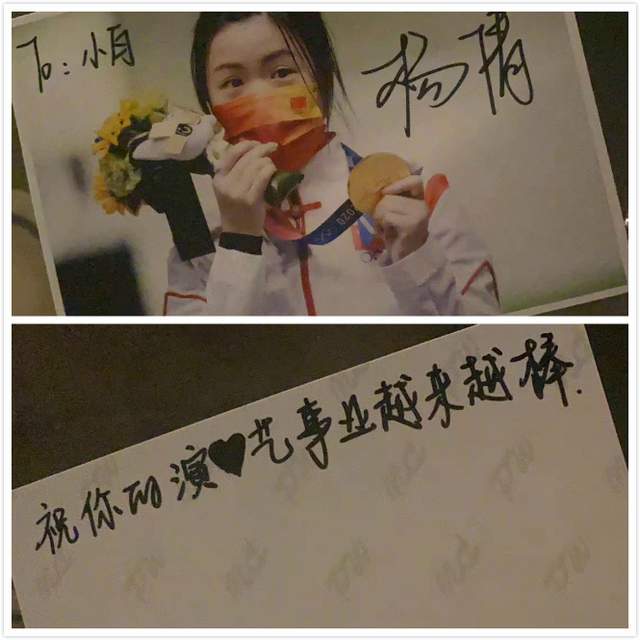 To: 小白
杨倩
2020
祝你的演♥艺事业越来越棒.